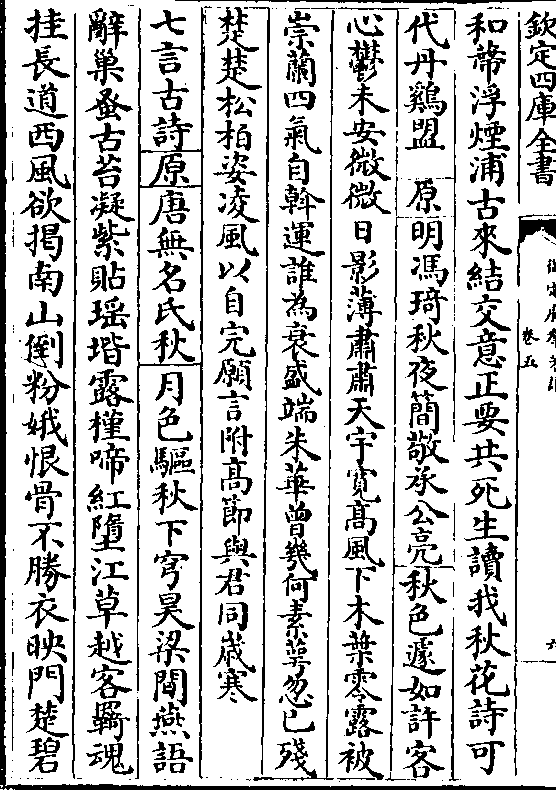 欽定四庫全書
卷五
六
和幣浮煙浦古來結交意正要共死生讀我秋花詩可
代丹鷄盟 原明馮琦秋夜簡敬承公亮秋色遽如許客
心鬱未安微微日影薄肅肅天宇寛高風下木葉零露被
崇蘭四氣自斡運誰為衰盛端朱華曾幾何素萼忽已殘
楚楚松柏姿凌風以自完願言附髙節與君同歲寒
七言古詩原唐無名氏秋月色驅秋下穹昊梁間燕語
辭巢蚤古苔凝紫貼瑶堦露槿啼紅墮江草越客羇魂
挂長道西風欲掲南山倒粉娥恨骨不勝衣映門楚碧